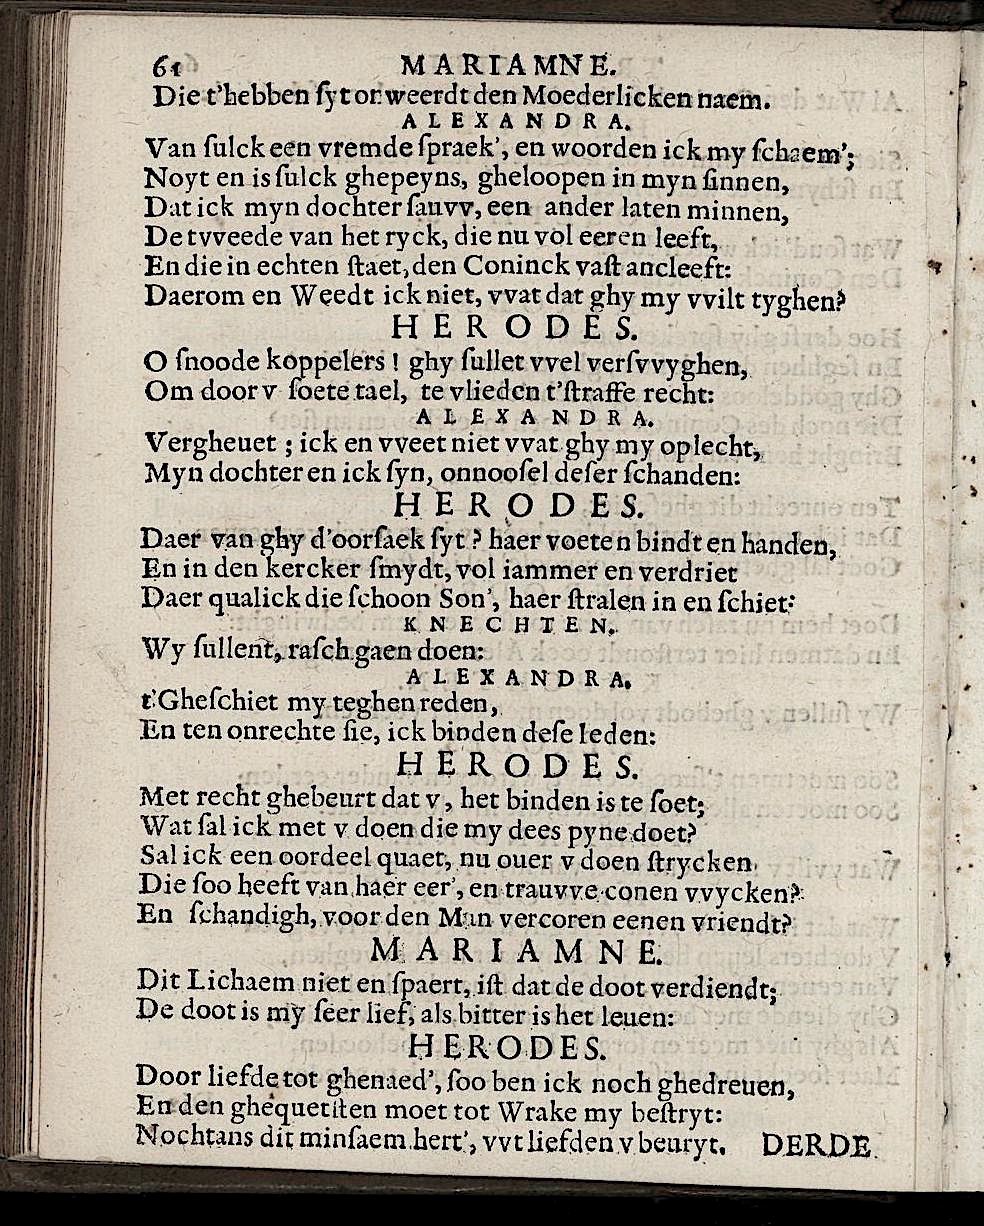 61 MARIAMNE.
Die t'hebben ſyt onweerdt den Moederlicken naem.
ALEXANDRA.
Van ſulck een vremde ſpraek', en woorden ick my ſchaem';
Noyt en is ſulck ghepeyns, gheloopen in myn ſinnen,
Dat ick myn dochter ſauvv, een ander laten minnen,
De tvveede van het ryck, die nu vol eeren leeft,
En die in echten ſtaet, den Coninck vaſt ancleeft:
Daerom en Weedt ick niet, vvat dat ghy my vvilt tyghen?
HERODES.
O ſnoode koppelers! ghy ſullet vvel verſvvyghen,
Om door v ſoete tael, te vlieden t'ſtraffe recht:
ALEXANDRA.
Vergheuet; ick en vveet niet vvat ghy my oplecht,
Myn dochter en ick ſyn, onnooſel deſer ſchanden:
HERODES.
Daer van ghy d'oorſaek ſyt? haer voeten bindt en handen,
En in den kercker ſmydt, vol iammer en verdriet
Daer qualick die ſchoon Son', haer ſtralen in en ſchiet:
KNECHTEN.
Wy ſullent, raſch gaen doen:
ALEXANDRA.
t'Gheſchiet my teghen reden,
En ten onrechte ſie, ick binden deſe leden:
HERODES.
Met recht ghebeurt dat v, het binden is te ſoet;
Wat ſal ick met v doen die my dees pyne doet?
Sal ick een oordeel quaet, nu ouer v doen ſtrycken
Die ſoo heeft van haer eer', en trauvve conen vvycken?
En ſchandigh, voor den Man vercoren eenen vriendt?
MARIAMNE.
Dit Lichaem niet en ſpaert, iſt dat de doot verdiendt;
De doot is my ſeer lief, als bitter is het leuen:
HERODES.
Door liefde tot ghenaed', ſoo ben ick noch ghedreuen,
En den ghequetſten moet tot Wrake my beſtryt:
Nochtans dit minſaem hert', vvt liefden v beuryt. DERDE